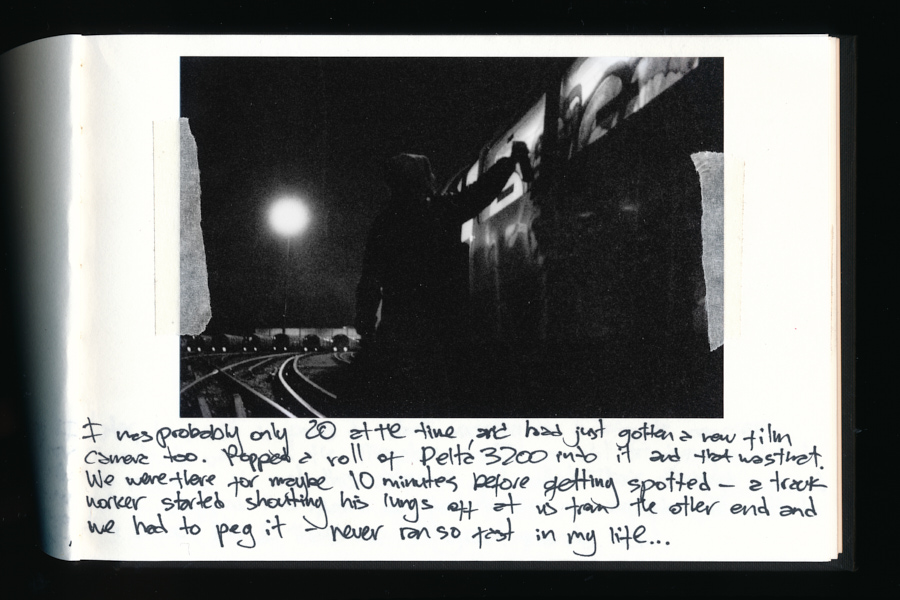 I was probably only 20 at the time, and had just gotten a new film
camera too. Popped a roll of Delta 3200 into it and that was that.
We were there for maybe 10 minutes before getting spotted – a track
worker started shouting his lungs off at us from the other end and
we had to peg it – never ran so fast in my life...